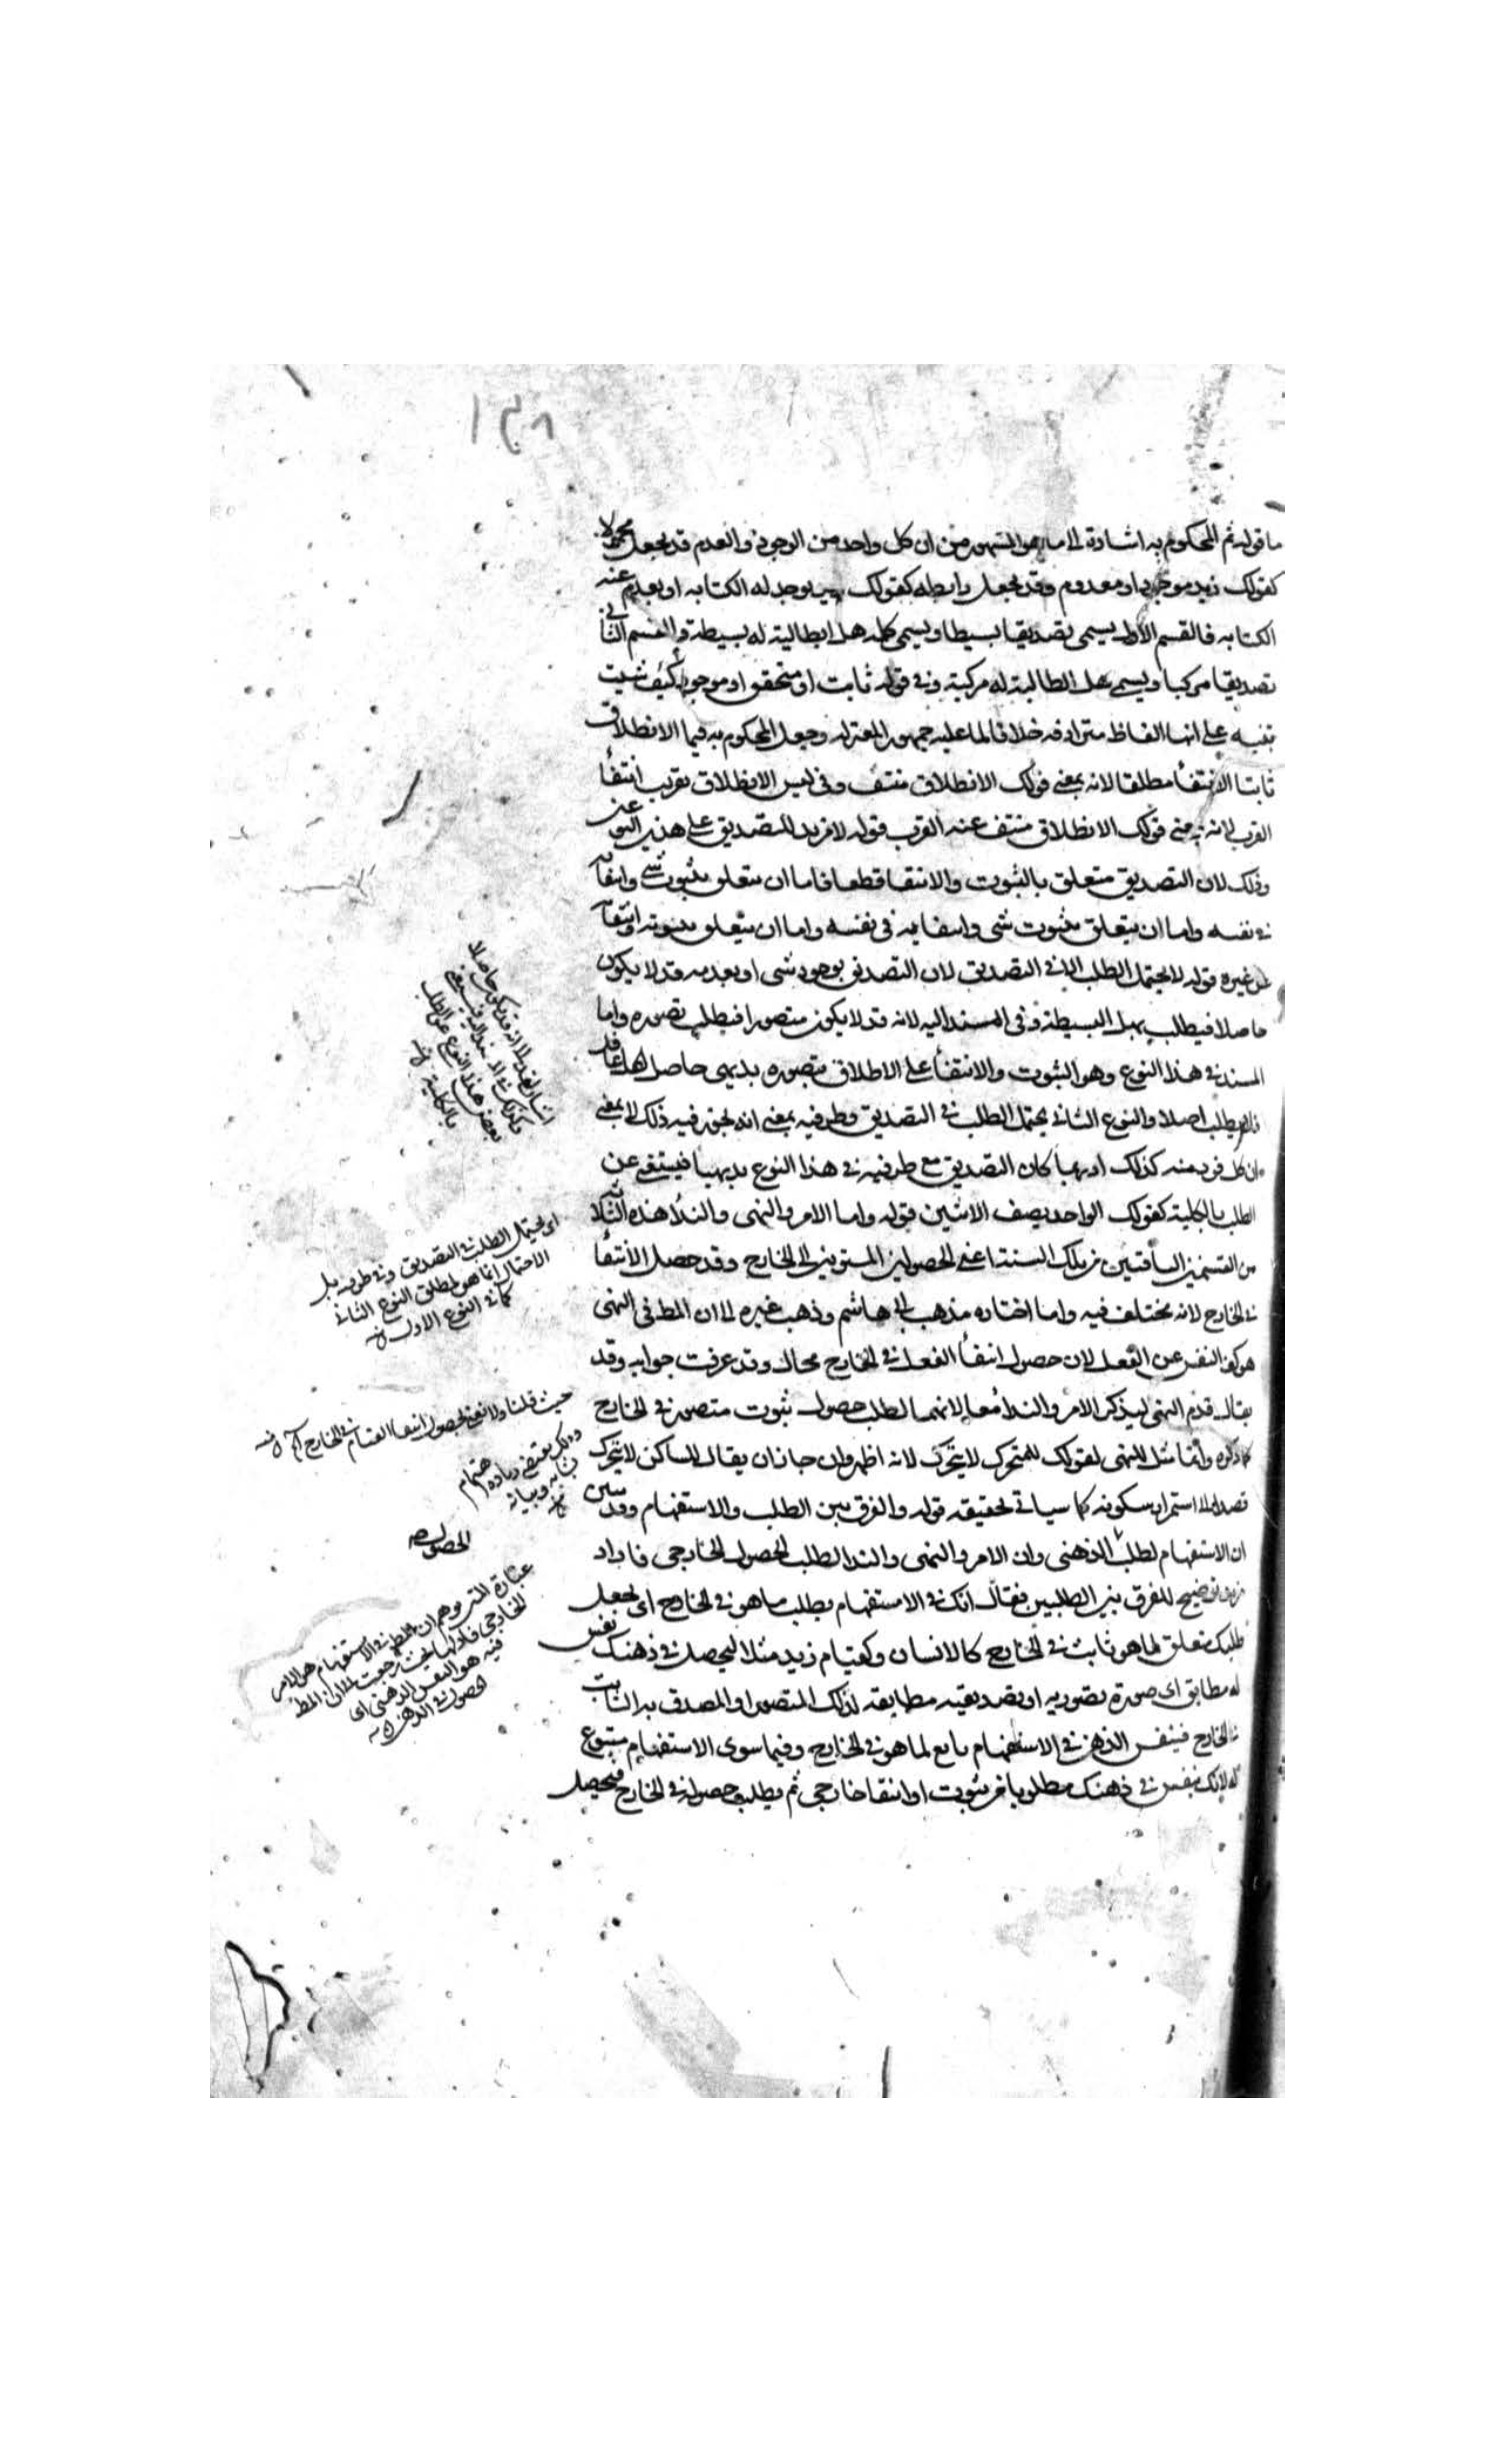 ١٣٨
ما قوله ثم المحكوم به اشارة الى ما هو المشهور من ان كل واحد من الوجود والعدم قد يجعل محمولا
كقولك زيد موجود او معدوم وقد يجعل رابطه كقولك زيد يوجد له الكتابه او يعدم عنه
الكتابه فالقسم الاول يسمى تصديقا بسيطا ويسمى كلمه هل الطالبة له بسيطة والقسم الثانى
تصديقا مركبا ويسمى هل الطالبة له مركبة وفى قوله ثابت او متحقق او موجود كيف شيت
تنبيه على انها الفاظ مترادفه خلافا لما عليه جمهور المعتزله وجعل المحكوم به فيما الانطلاق
ثابتا الانتفأ مطلقا لانه بمعنى قولك الانطلاق منتف وفى ليس الانطلاق بقريب انتفأ
القرب لانه فى معنى قولك الانطلاق منتف عنه القرب قوله لا مزيد للتصديق على هذين النوعين
وذلك لان التصديق متعلق بالثبوت والانتفا قطعا فاما ان يتعلق بثبوت شى وانتفائه
فى نفسه واما ان يتعلق بثبوت شى وانتفايه فى نفسه واما ان يتعلق بثبوته وانتفائه
عن غيره قوله لا يحتمل الطلب الا فى التصديق لان التصديق بوجود شى او بعدمه قد لا يكون
حاصلا فيطلب بهل البسيطة وفى المسند اليه لانه قد لا يكون متصورا فيطلب تصوره واما
المسند فى هذا النوع وهو الثبوت والانتفأ على الاطلاق فتصوره بديهى حاصل لكل عاقل
فلا يطلب اصلا والنوع الثانى يحتمل الطلب فى التصديق وطرفيه بمعنى انه يجوز فيه ذلك لا بمعنى
ان كل فرد منه كذلك اذ ربما كان التصديق مع طرفيه فى هذا النوع بديهيا فيستغنى عن
الطلب بالكلية كقولك الواحد نصف الاثنين قوله واما الامر والنهى والندأ هذه الثلاثه
من القسمين الباقيين من تلك الستة اعنى الحصولين المستويين الى الخارج وقد حصل الانتفأ
فى الخارج لانه مختلف فيه واما اختاره مذهب ابى هاشم وذهب غيره الى ان المط فى النهى
هو كف النفس عن الفعل لان حصول انتفأ الفعل فى الخارج محال وقد عرفت جوابه وقد
يقال قدم النهى ليذكر الامر والندأ معا لانهما لطلب حصول ثبوت متصور فى الخارج
كما ذكره وانما مثل للنهى بقولك للمتحرك لا يتحرك لانه اظهر وان جاز ان يقال للساكن لا يتحرك
قصدا الى استمرار سكونه كما سياتى تحقيقه قوله والفرق بين الطلب والاستفهام وقد تبين
ان الاستفهام لطلب الذهنى وان الامر والنهى والندا لطلب الحصول الخارجى فاراد
مزيد توضيح للفرق بين الطلبين فقال انك فى الاستفهام يطلب ما هو فى الخارج اى يجعل
طلبك متعلق لما هو ثابت فى الخارج كالانسان وكقيام زيد مثلا ليحصل فى ذهنك نقش
له مطابق اى صورة تصوريه او تصديقيه مطابقه لذلك المتصور او المصدق به الثابت
فى الخارج فينقش الذهن فى الاستفهام تابع لما هو فى الخارج وفيما سوى الاستفهام متبوع
له لانك تنقش فى ذهنك مطلوبا من ثبوت او انتفا خارجى ثم يطلب حصوله فى الخارج فيحصل
بالكلية
اى يحتمل الطلب فى التصديق وفى طرفيه بل
الاحتمال انما هو لمطلق النوع الثانى
كما فى النوع الاول
حيث قلنا ولا نعنى بحصول انتفا القيام فى الخارج
وذلك يقتضى زيادة اهتمام
به وبيانه
الحصول
فيه هو النقش الذهنى اى
الحصول فى الذهن